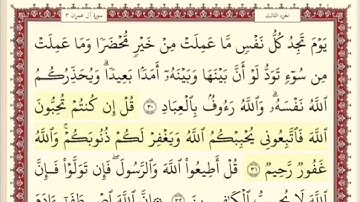 الجزء الثالث
سورة آل عمران ٣
يَوْمَ تَجِدُ كُلُّ نَفْسٍ مَّا عَمِلَتْ مِنْ خَيْرٍ مُّحْضَرًا وَمَا عَمِلَتْ
مِن سُوٓءٍ تَوَدُّ لَوْ أَنَّ بَيْنَهَا وَبَيْنَهُۥٓ أَمَدًۢا بَعِيدًا ۗ وَيُحَذِّرُكُمُ
ٱللَّهُ نَفْسَهُۥ ۗ وَٱللَّهُ رَءُوفٌۢ بِٱلْعِبَادِ ٣٠ قُلْ إِن كُنتُمْ تُحِبُّونَ
ٱللَّهَ فَٱتَّبِعُونِى يُحْبِبْكُمُ ٱللَّهُ وَيَغْفِرْ لَكُمْ ذُنُوبَكُمْ ۗ وَٱللَّهُ
غَفُورٌ رَّحِيمٌ ٣١ قُلْ أَطِيعُوا۟ ٱللَّهَ وَٱلرَّسُولَ ۖ فَإِن تَوَلَّوْا۟ فَإِنَّ